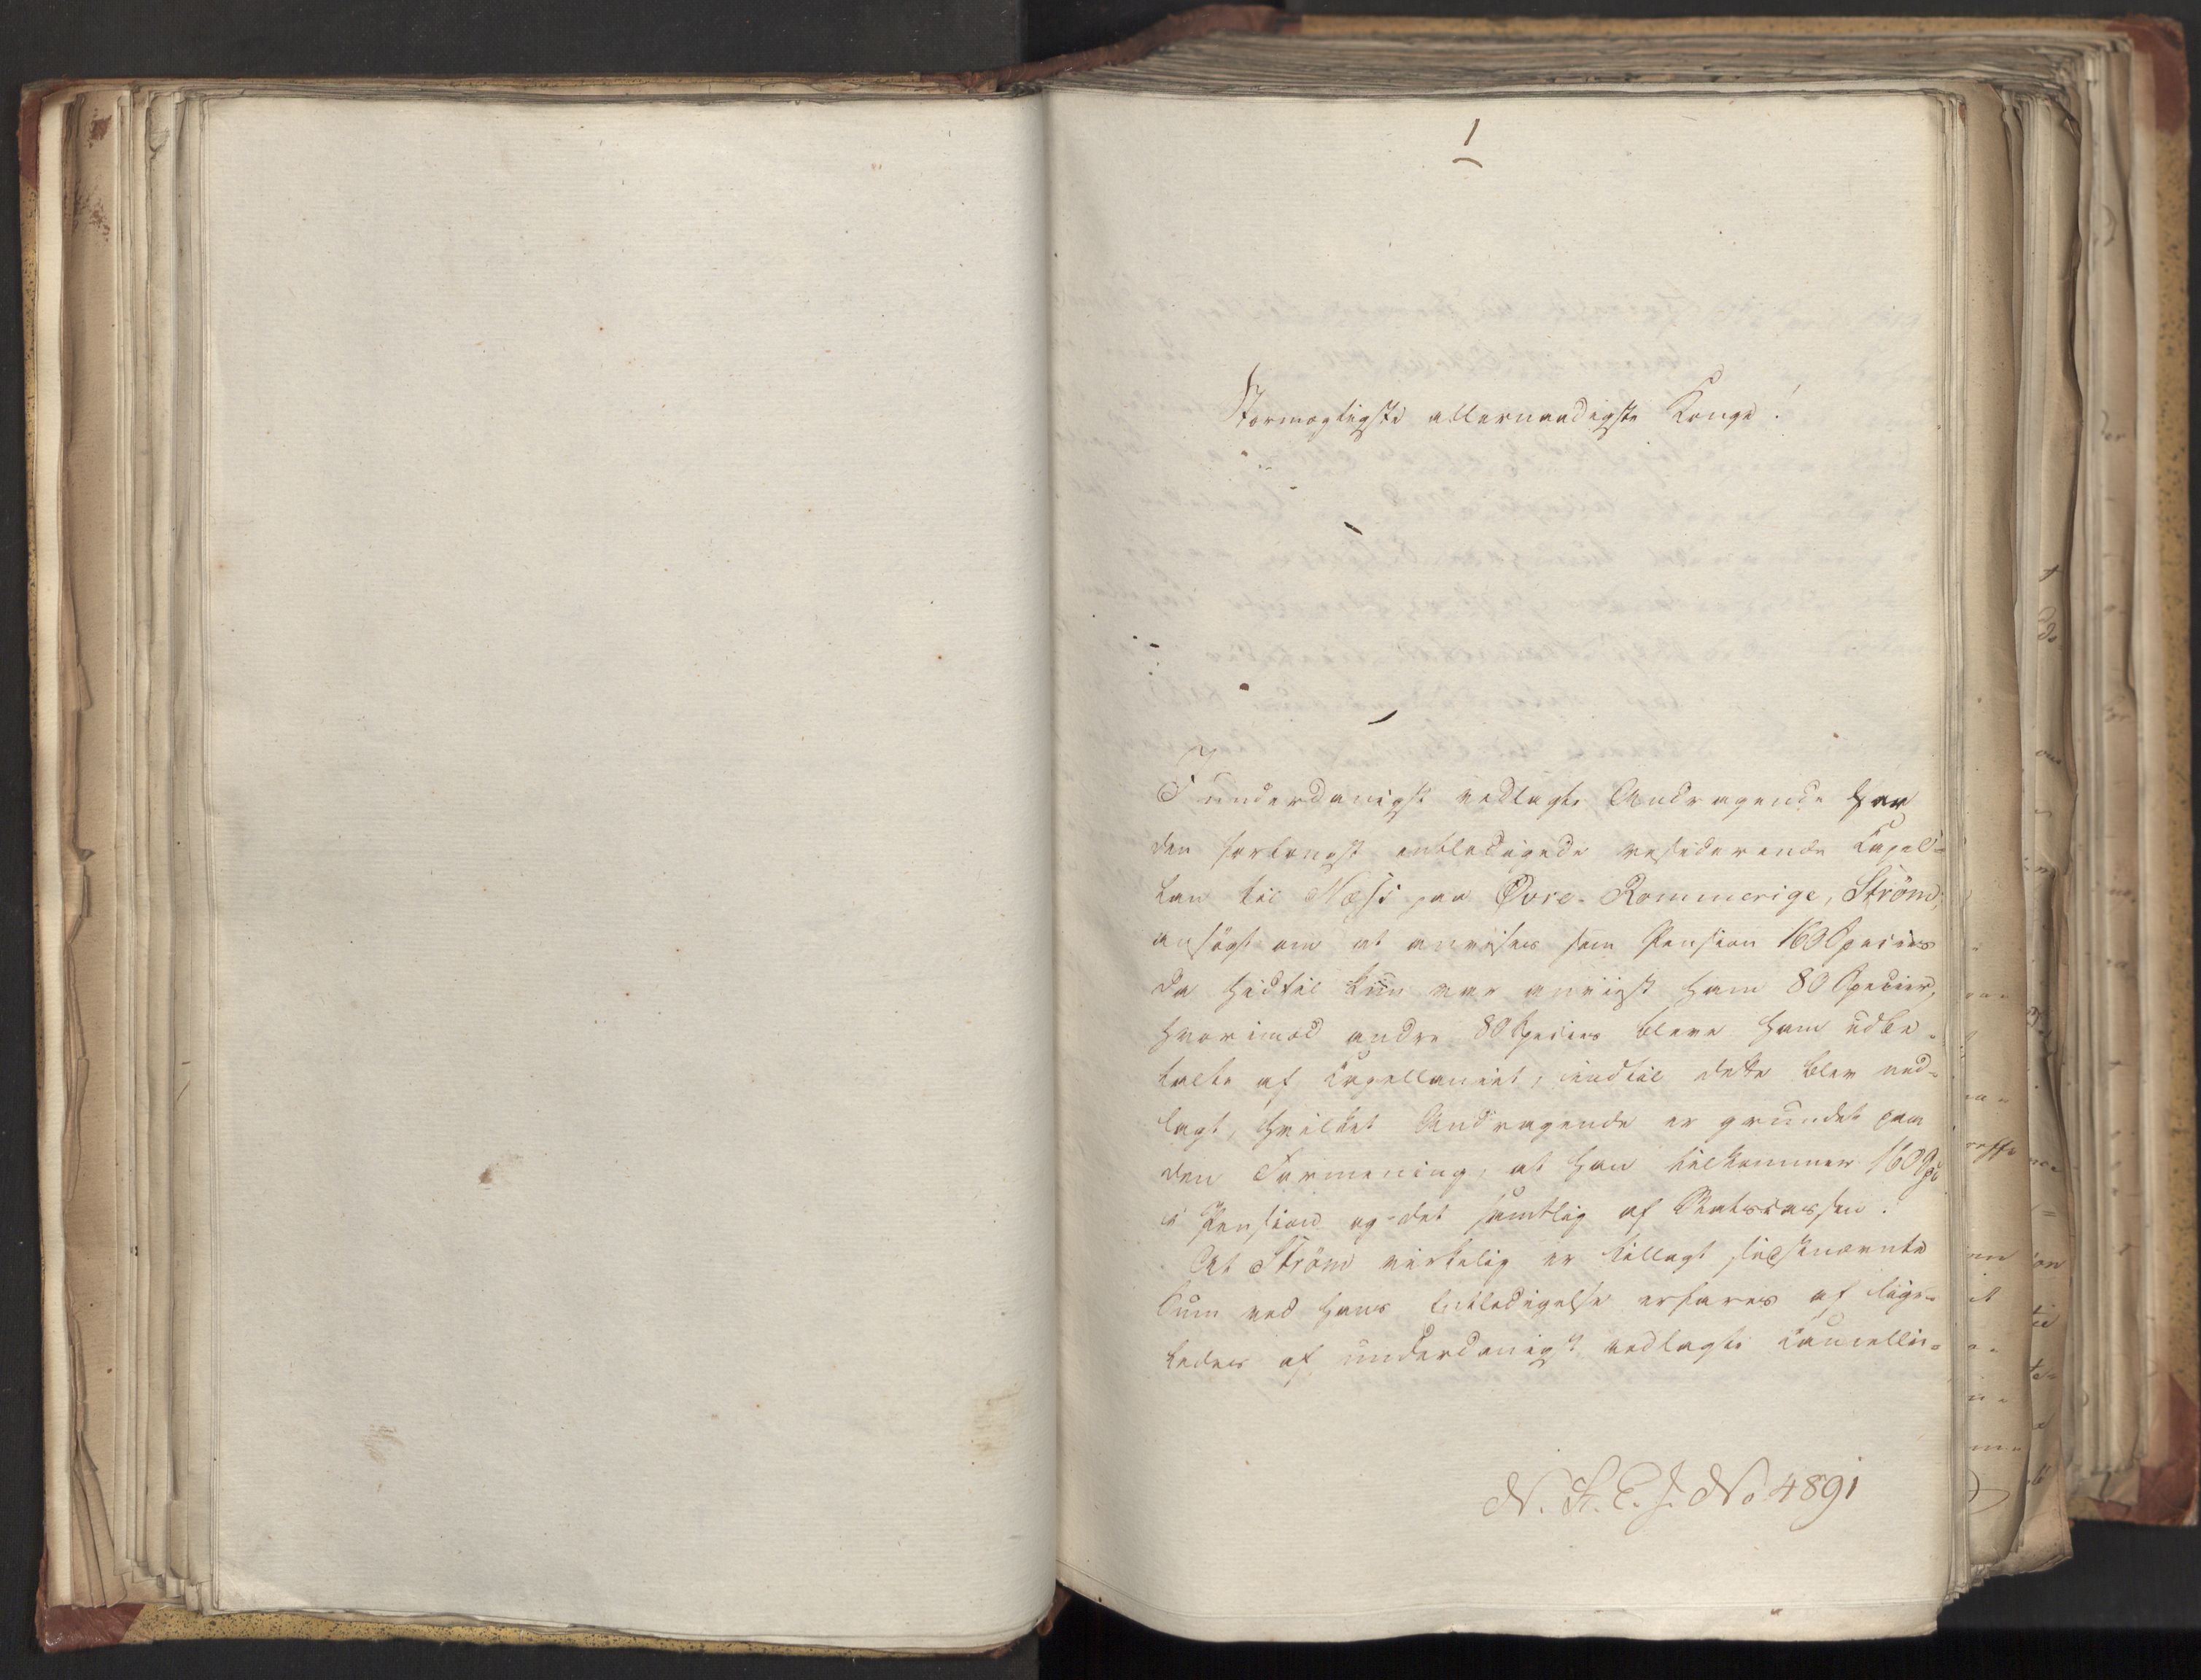 1
Stormægtigste allernaadigste Konge!
I underdanigst vedlagte Andragende har
den forlængst entledigede residerende Capel-
lan til Næss paa Øvre-Rommerige, Strøm,
ansøgt om at anvises som Pension 160 Species
da hidtil kun var anviist ham 80 Species,
hvorimod andre 80 Species bleve ham udbe-
talte af Capellaniet, indtil dette blev ned-
lagt, hvilket Andragende er grundet paa
den Formening, at han tilkommer 160 Sp
i Pension og det samtlig af Statscassen.
At Strøm virkelig er tillagt sidstnævnte
Sum ved hans Entledigelse erfares af lige-
ledes af underdanigst vedlagte Cancellie-
N. K. E. J. No 4891